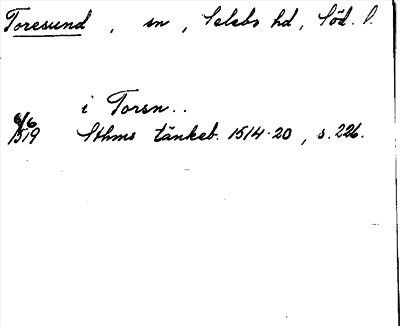 Toresund, sn, Selebo hd, Söd. l.
i Torsn..
6/6
1519 Sthms tänkeb. 1514-20, s. 226.